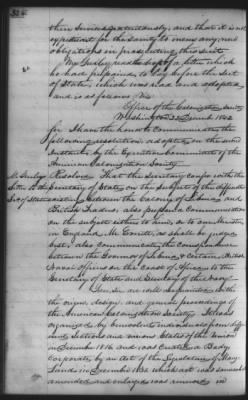 their services gratuitously, and that it is not
expedient for the Society to incur any new
obligations in prosecuting this suit.
Mr Gurley read the draft of a letter which
he had prepared to lay before the Sect
of State, which was read and adopted,
and is as follows Viz
Office of the Colonization Society
Washington March 1842
Sir I have the honor to communicate the
following resolution adopted on the
instant by the Executive Committee of the
American Colonization Society
Mr Gurleys Resolved That the Secretary confer with the
letter to the Secretary of State on the subject of the difficulties
Sec of State existing between the Colony of Liberia and
British Traders, also prepare a Communication
on the subject either to him or to our minister
in England Mr Everett, as shall be judged
best, also communicate the correspondence
between the Governor of Liberia & certain British
Naval officers on the Coast of Africa to the
Secretary of State and Secretary of the Navy
you Sir are well acquainted with
the origin, design and general proceedings of
the American Colonization Society. It was
organized by benevolent individuals from differ
ent Sections and various States of the Union
in December 1816 and was created a Body
Corporate by an Act of the Legislature of Mary
land in December 1831 which act was
amended and enlarged was annulled in